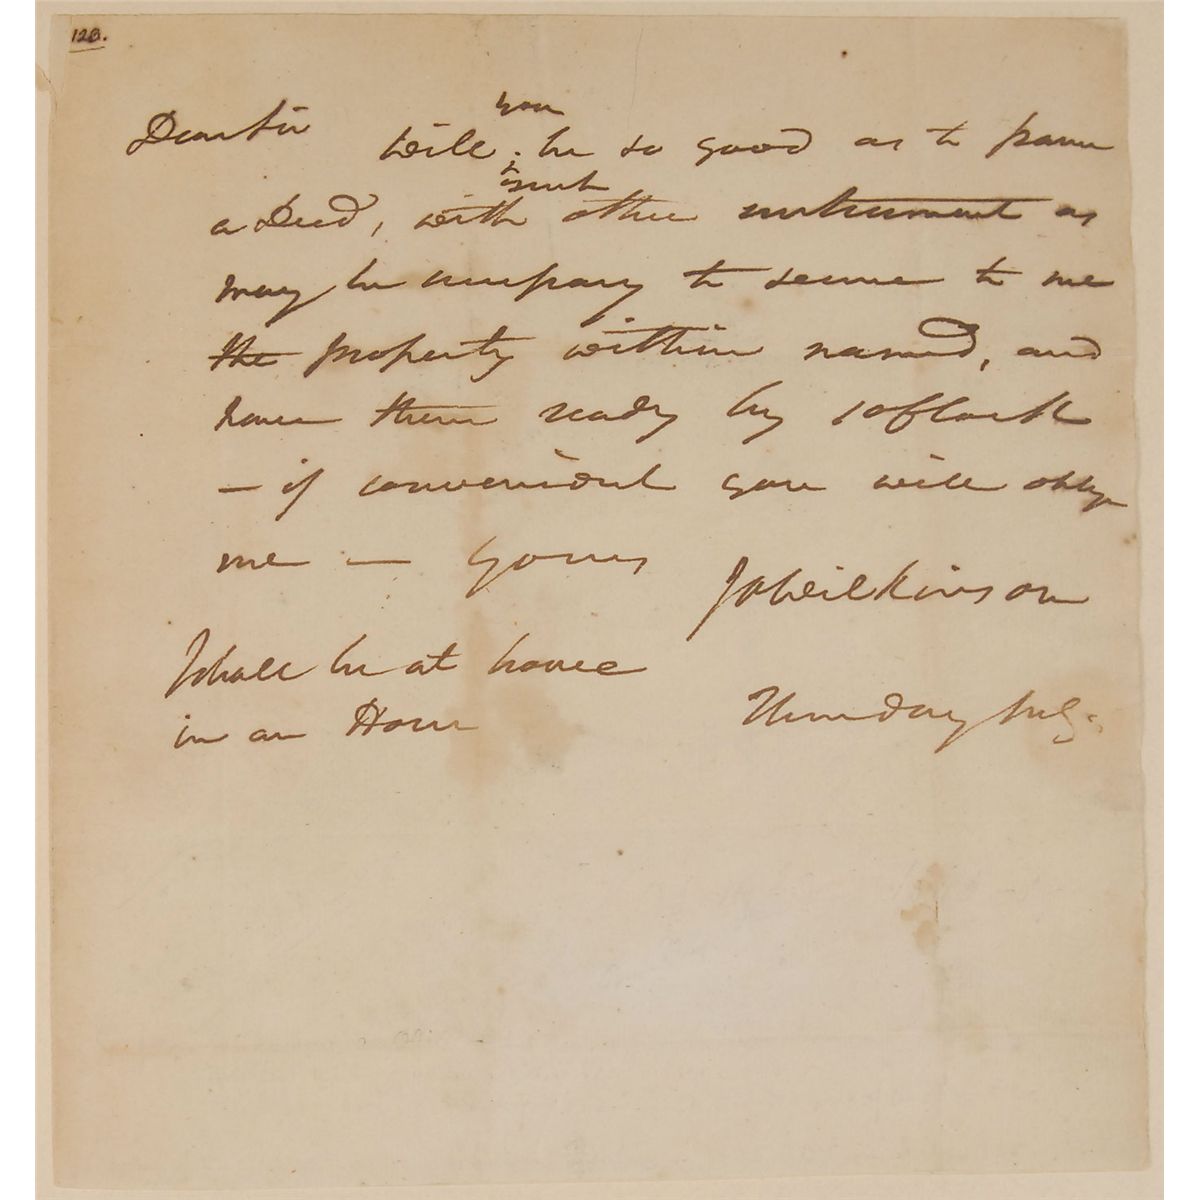 128.
Dear Sir
you
Will be so good as to frame
such
a Deed, with other instrument as
may be necessary to secure to me
the property within named, and
have them ready by 10 oClock
— if convenient you will oblige
me — Yours
JaWilkinson
I shall be at home
in an Hour
Thursday